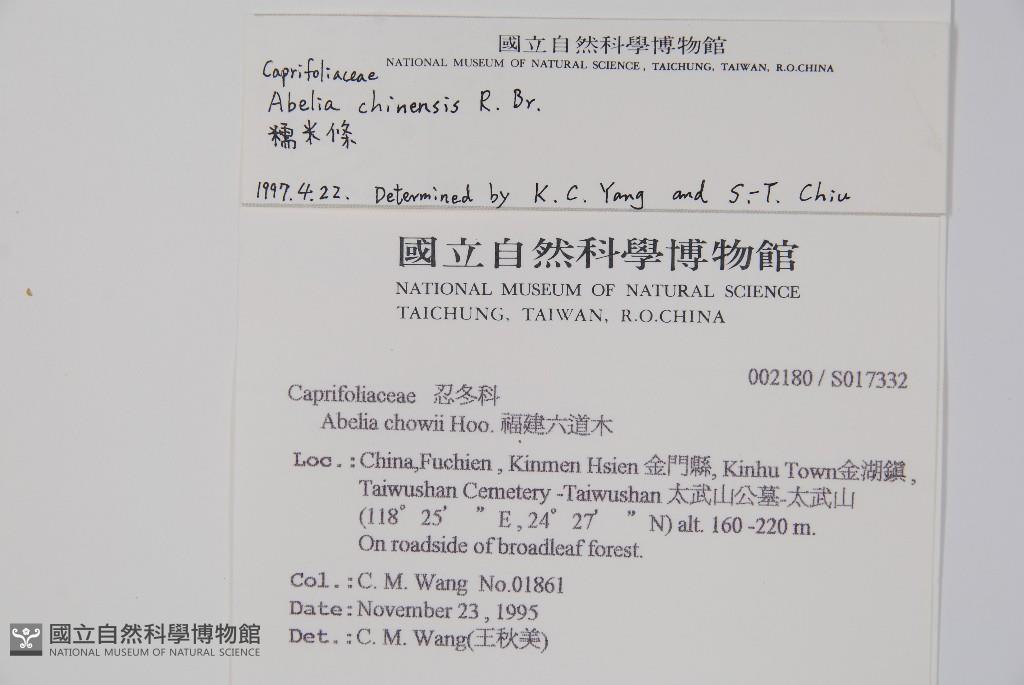 國立自然科學博物館
NATIONAL MUSEUM OF NATURAL SCIENCE, TAICHUNG, TAIWAN, R.O.CHINA
Caprifoliaceae
Abelia chinensis R. Br.
糯米條
1997.4.22. Determined by K. C. Yang and S.-T. Chiu
國立自然科學博物館
NATIONAL MUSEUM OF NATURAL SCIENCE
TAICHUNG, TAIWAN, R.O.CHINA
002180 / S017332
Caprifoliaceae 忍冬科
Abelia chowii Hoo. 福建六道木
Loc.:China,Fuchien , Kinmen Hsien 金門縣, Kinhu Town金湖鎭,
Taiwushan Cemetery -Taiwushan 太武山公墓-太武山
(118° 25' " E , 24° 27' " N) alt. 160 -220 m.
On roadside of broadleaf forest.
Col.:C. M. Wang No.01861
Date:November 23 , 1995
Det.:C. M. Wang(王秋美)
國立自然科學博物館
NATIONAL MUSEUM OF NATURAL SCIENCE